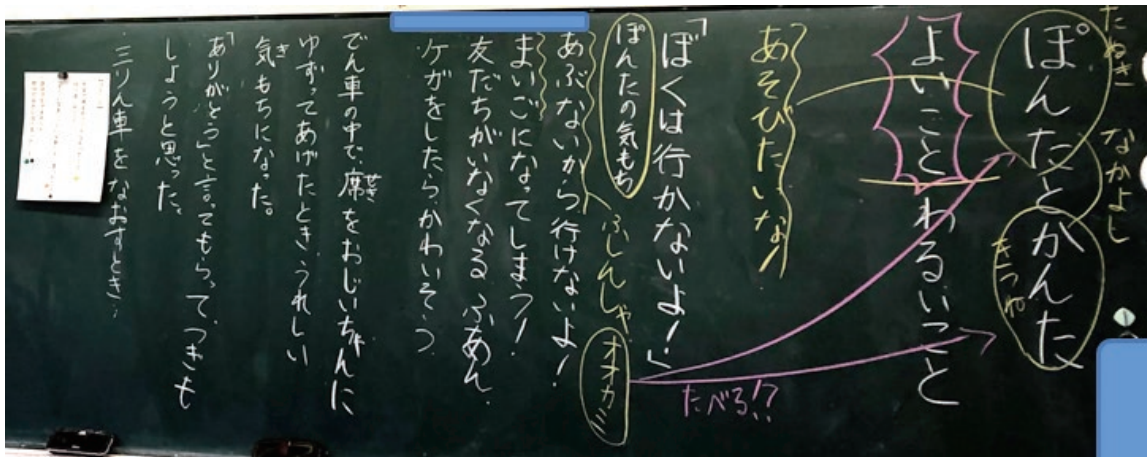 たぬき なかよし
ぽんたとかんた
きつね
よいことわるいこと
あそびたいな！
「ぼくは行かないよ！」
たべる!?
ぽんたの気もち
ふしんしゃ
オオカミ
あぶないから行けないよ！
まいごになってしまう！
友だちがいなくなる ふあん.
ケガをしたらかわいそう
でん車の中で、席をおじいちゃんに
せき
ゆずってあげたとき、うれしい
気もちになった。
き
「ありがとう」と言ってもらって、つぎも
しようと思った。
三りん車をなおすとき…